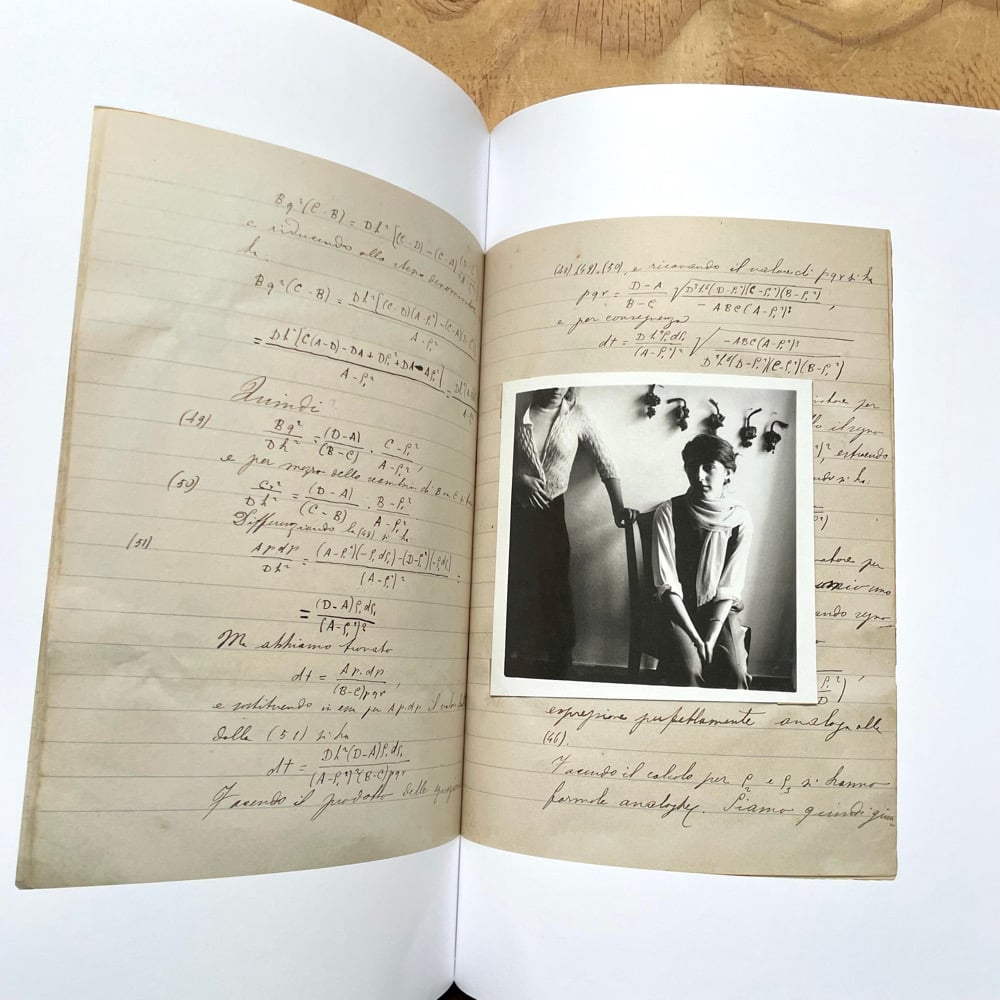 Bq²(C-B) = Dh²[(C-D)-(C-A)
e riducendo allo stesso denominatore
h.
Bq²(C-B) = Dh²[(C-D)(A-ρ₁²)-(C-A)
A-ρ₁²
= Dh²[C(A-D)-DA+Dρ₁²+DA-Aρ₁²]
A-ρ₁²
Quindi
(49) Bq²/Dh² = (D-A)/(B-C) · C-ρ₁²/A-ρ₁² ,
e per mezzo dello scambio di B in C
(50) Cr²/Dh² = (D-A)/(C-B) · B-ρ₁²/A-ρ₁²
Differenziando la (48) si ha
(51) Apdp/Dh² = (A-ρ₁²)(-ρ₁dρ₁)-(D-ρ₁²)(-ρ₁dρ₁)/(A-ρ₁²)² =
= (D-A)ρ₁dρ₁/(A-ρ₁²)²
Ma abbiamo trovato
dt = Ap.dp/(B-C)pqr ,
e sostituendo in essa per Apdp il valore
dalla (51) si ha
dt = Dh²(D-A)ρ₁dρ₁/(A-ρ₁²)²(B-C)pqr
Facendo il prodotto delle
(48), (49), (50), e ricavando il valore di pqr si ha
pqr = D-A/B-C √D³h⁶(D-ρ₁²)(C-ρ₁²)(B-ρ₁²)/-ABC(A-ρ₁²)³ ,
e per conseguenza
dt = Dh²ρ₁dρ₁/(A-ρ₁²)² √-ABC(A-ρ₁²)³/D³h⁶(D-ρ₁²)(C-ρ₁²)(B-ρ₁²)
per
il segno
essendo
si ha:
per
espressione perfettamente analoga alla
(46).
Facendo il calcolo per ρ₂ e ρ₃ si hanno
formole analoghe. Siamo quindi